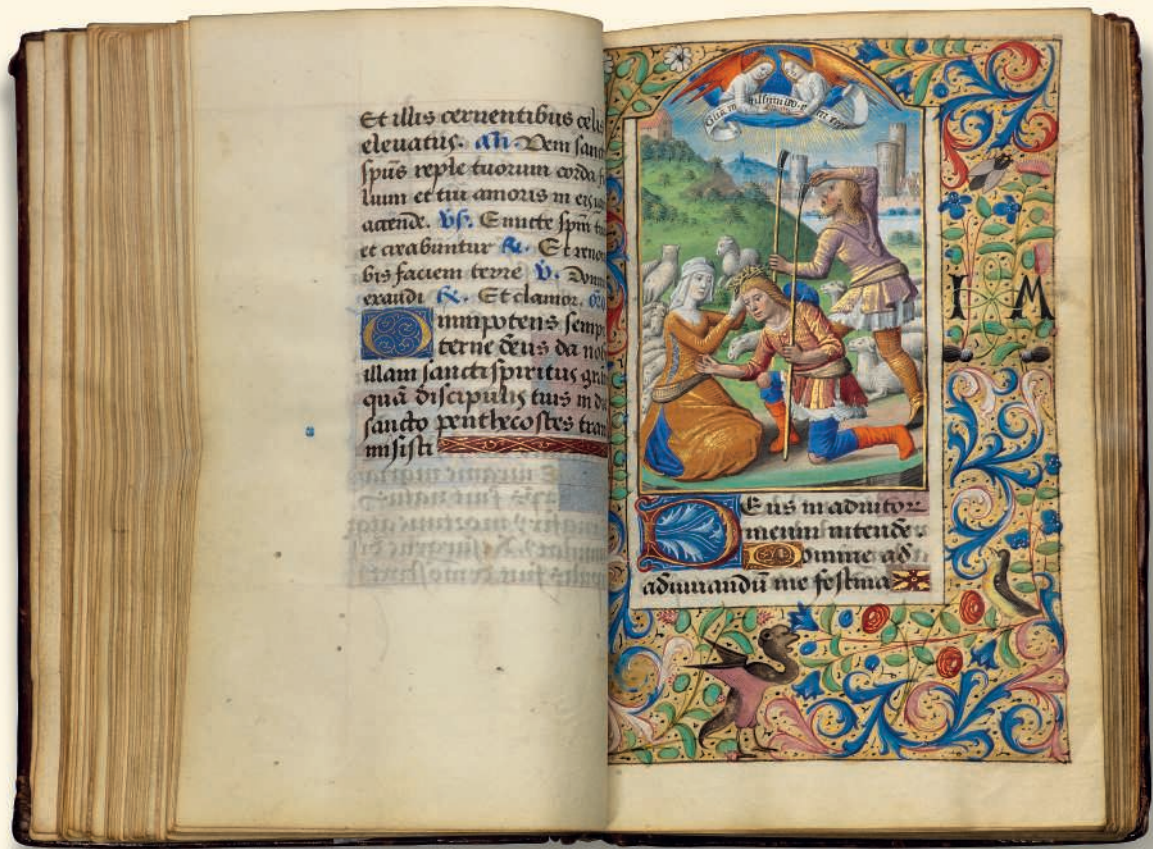 Et illis cernentibus
eleuatus. añ. Veni sanc
spūs reple tuorum corda
lium et tui amoris in
accende. Vs. Emitte spm̄
et creabuntur R. Et reno
bis faciem terre V. Domi
exaudi R. Et clamor.
Omnipotens semp
terne deus da nob
illam sancti spiritus gra
quā discipulis tuis in di
sancto penthecostes tran
misisti
I M
Deus in adiutor
meum intende
Domine ad
adiuuandū me festina